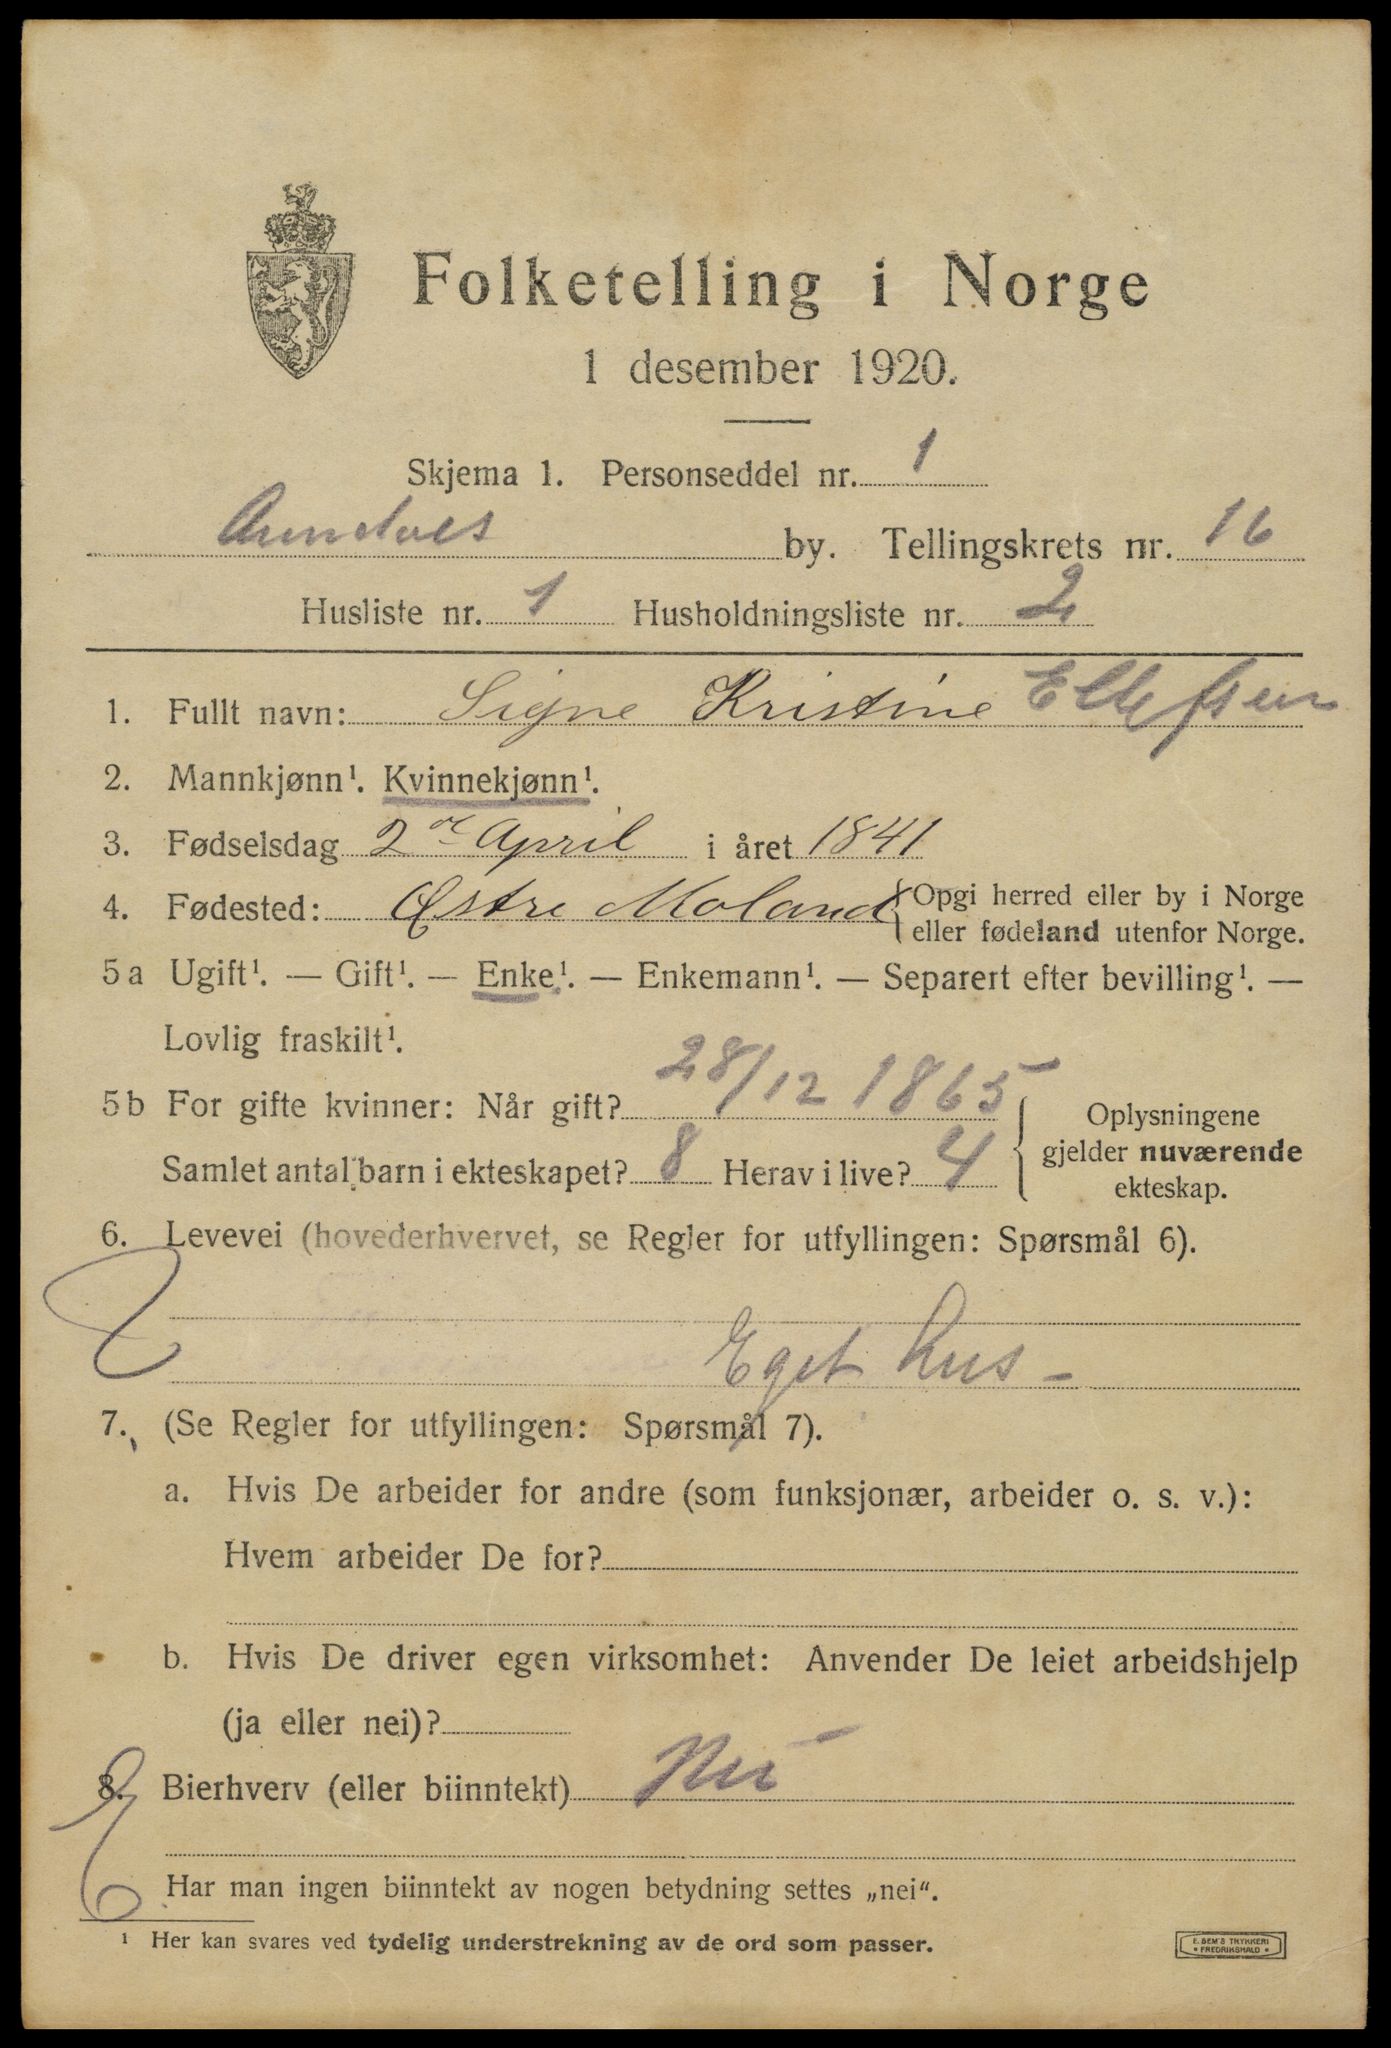 Folketelling i Norge
1 desember 1920.
Skjema 1. Personseddel nr. 1
Arendals by. Tellingskrets nr. 16
Husliste nr. 1 Husholdningsliste nr. 2
1. Fullt navn: Signe Kristine Ellefsen
2. Mannkjønn¹. Kvinnekjønn¹.
3. Fødselsdag 2de April i året 1841
4. Fødested: Østre Moland {Opgi herred eller by i Norge
eller fødeland utenfor Norge.
5a Ugift¹. — Gift¹. — Enke¹. — Enkemann¹. — Separert efter bevilling¹. —
Lovlig fraskilt¹.
5b For gifte kvinner: Når gift? 28/12 1865
Samlet antal barn i ekteskapet? 8 Herav i live? 4
Oplysningene
gjelder nuværende
ekteskap.
6. Levevei (hovederhvervet, se Regler for utfyllingen: Spørsmål 6).
Eget hus -
7. (Se Regler for utfyllingen: Spørsmål 7).
a. Hvis De arbeider for andre (som funksjonær, arbeider o. s. v.):
Hvem arbeider De for?
b. Hvis De driver egen virksomhet: Anvender De leiet arbeidshjelp
(ja eller nei)?
8. Bierhverv (eller biinntekt) Nei
Har man ingen biinntekt av nogen betydning settes „nei“.
¹ Her kan svares ved tydelig understrekning av de ord som passer.
E. SEM'S TRYKKERI
• FREDRIKSHALD •